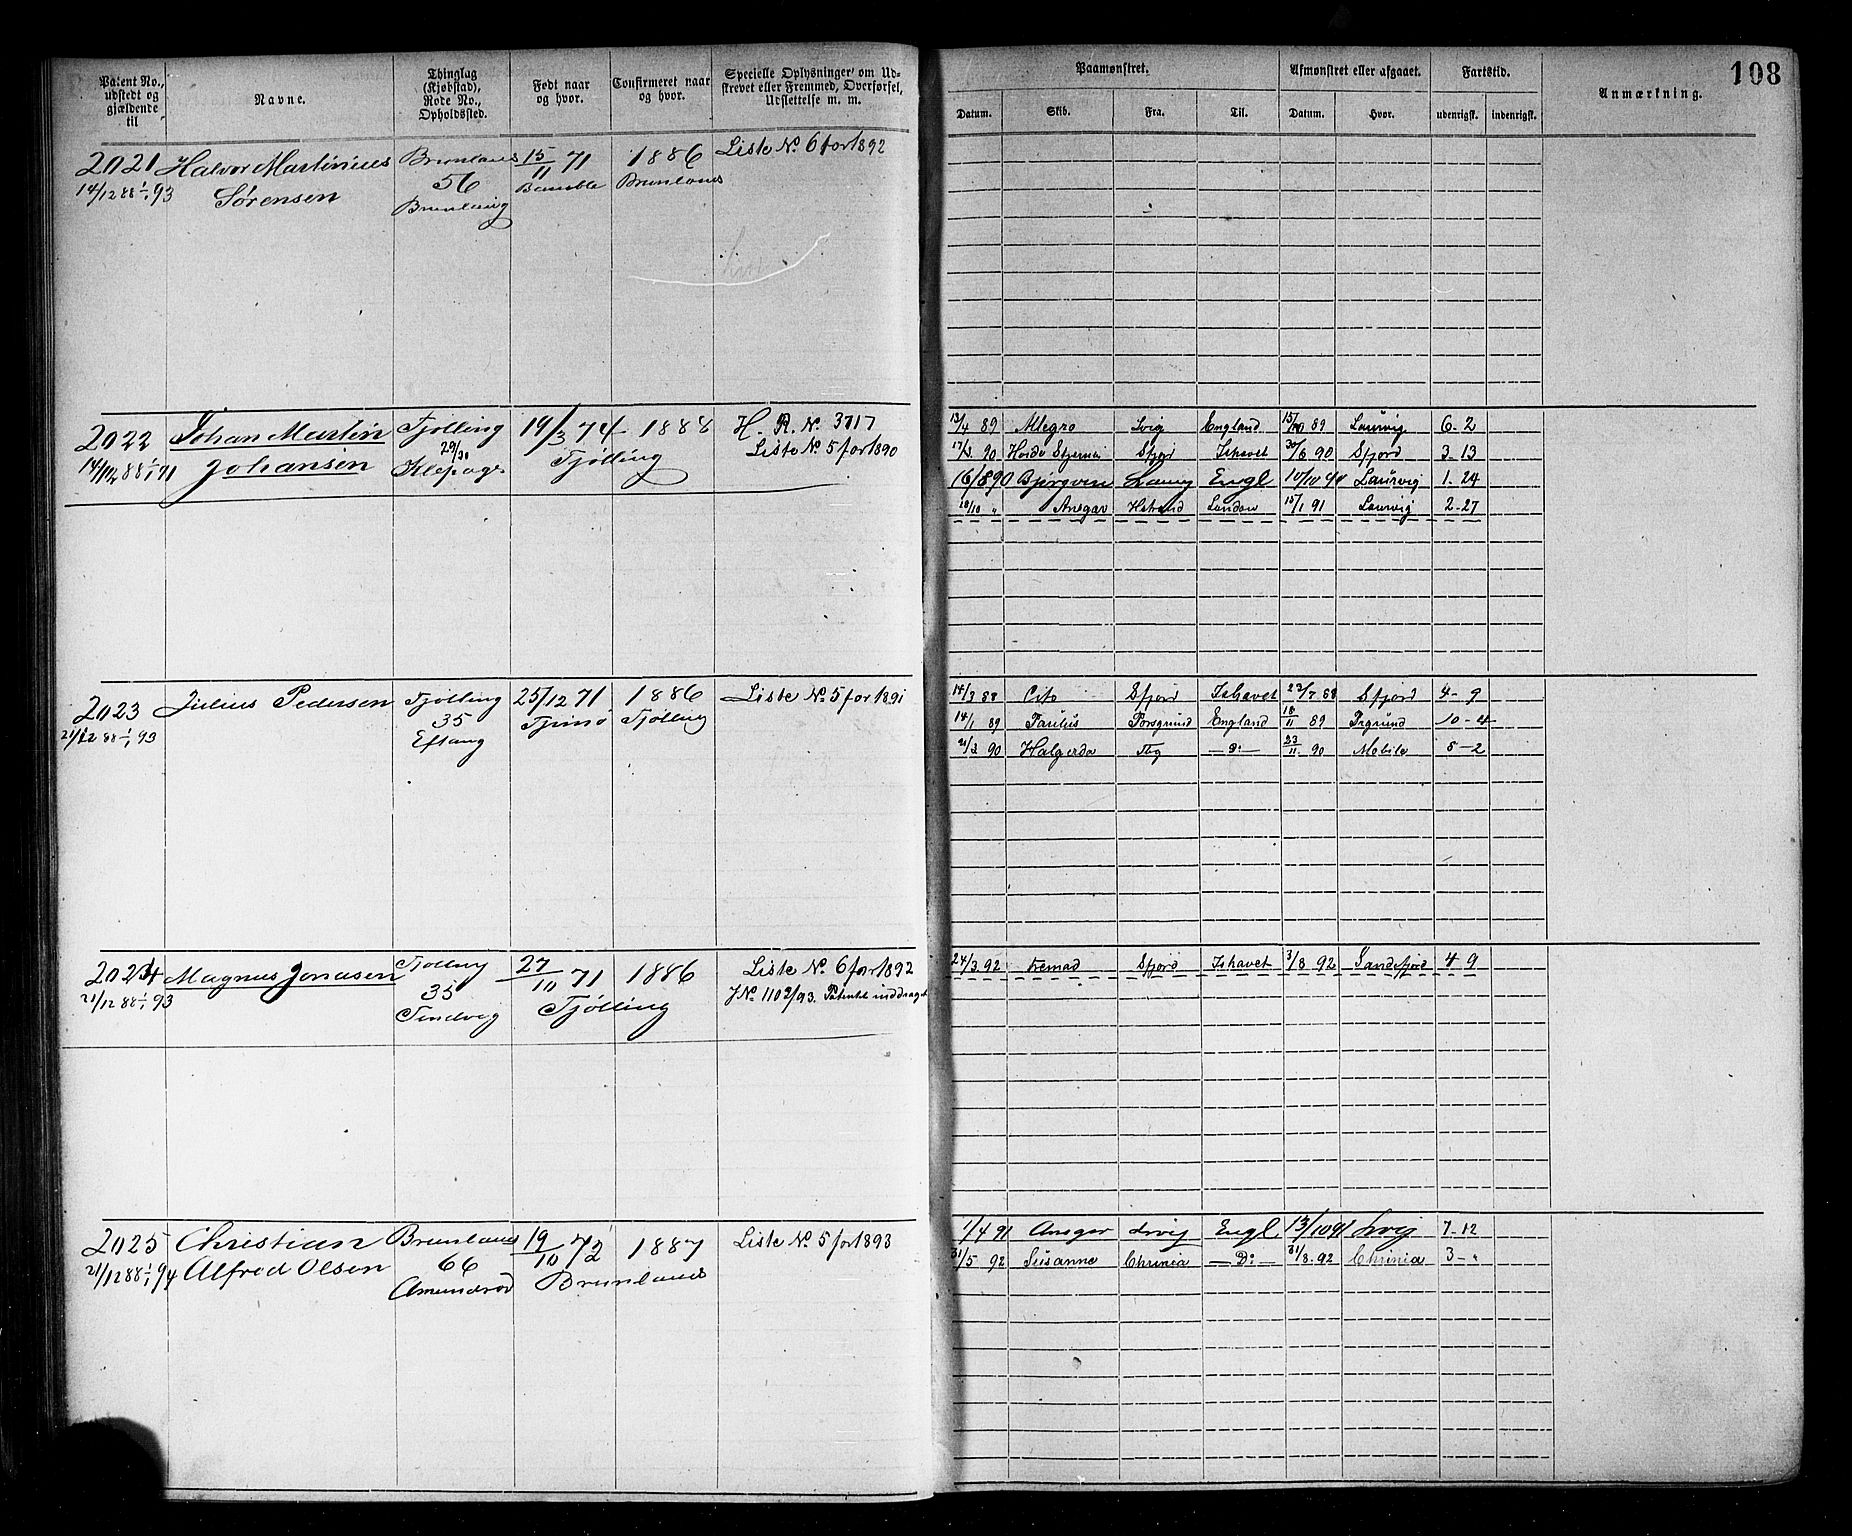 Patent No., udstedt og gjældende til
Navne.
Thinglag (Kjøbstad), Rode No., Opholdssted.
Født naar og hvor.
Confirmeret naar og hvor.
Specielle Oplysninger om Udskrevet eller Fremmed, Overførsel, Udslettelse m. m.
Paamønstret.
Afmønstret eller afgaaet.
Fartstid.
Anmærkning.
108
Datum. Skib. Fra. Til. Datum. Hvor. udenrigsk. indenrigsk.
2021 Halvor Martinius Brunlanæs 15/11 71 1886 Liste No. 6 for 1892
14/12 88 1/1 93 Sørensen 56 Bamble Brunlanæs
2022 Johan Martin Tjølling 19/3 74 1888 H. R. No. 3717
14/12 88 Johansen 29/30 Tjølling Liste No. 5 for 1890
13/4 89 Allegro Lvig England 15/10 89 Laurvig 6-2
17/3 90 Sfjord Ishavet 30/6 90 Sfjord 3-13
16/8 90 Bjørgvin Laurvg Engl 10/10 90 Laurvig 1-24
18/10 " Ansgar Hstrand London 15/1 91 Laurvig 2-27
2023 Julius Pedersen Tjølling 25/12 71 1886 Liste No. 5 for 1891
21/12 88 1/1 93 35 Tjømø Tjølling
Eftang
14/3 88 Cito Sfjord Ishavet 23/7 88 Sfjord 4-9
14/1 89 Paulus Porsgrund England 18/11 89 Prgrund 10-4
21/3 90 Halgerda Tbg — D: — 23/11 90 Mobile 8-2
2024 Magnus Jonasen Tjølling 27/11 71 1886 Liste No. 6 for 1892
21/12 88 1/1 93 35 Tjølling J No. 1102/93. Patentet inddraget
Tindvig
24/3 92 Sfjord Ishavet 3/8 92 Sandefjord 4 9
2025 Christian Brunlanæs 19/10 72 1887 Liste No. 5 for 1893
21/12 88 1/1 94 Alfred Olsen 66 Brunlanæs
Amundrød
1/4 91 Ansgar Lrvig Engl 13/10 91 Lvig 7-12
31/5 92 Susanne Chrinia — D: — 31/8 92 Chrinia 3-"